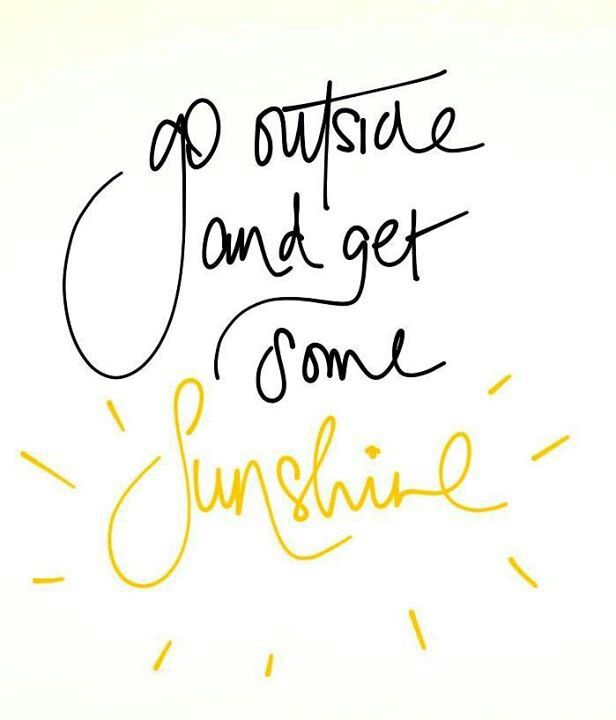 go outside
and get
some
sunshine